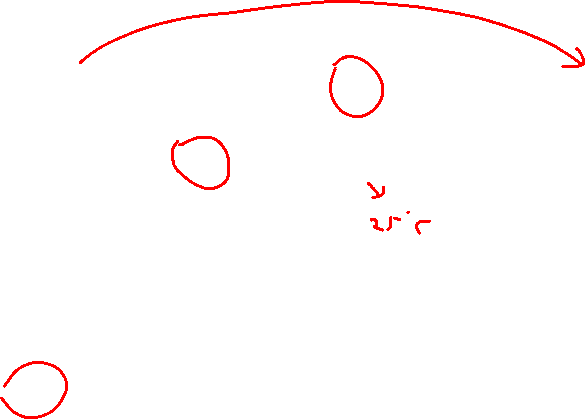 25°C